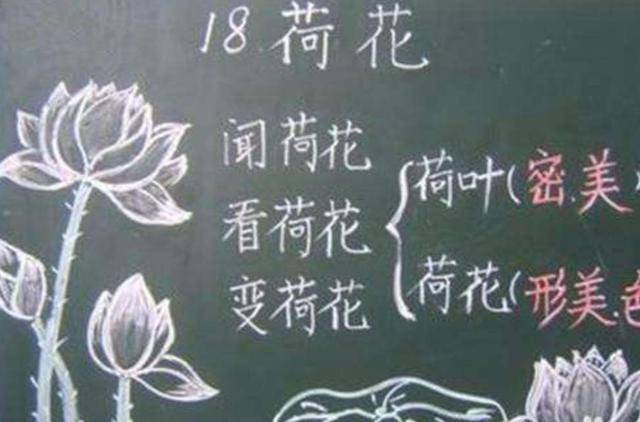 18 荷花
闻荷花
看荷花
变荷花
荷叶(密.美)
荷花(形美.色